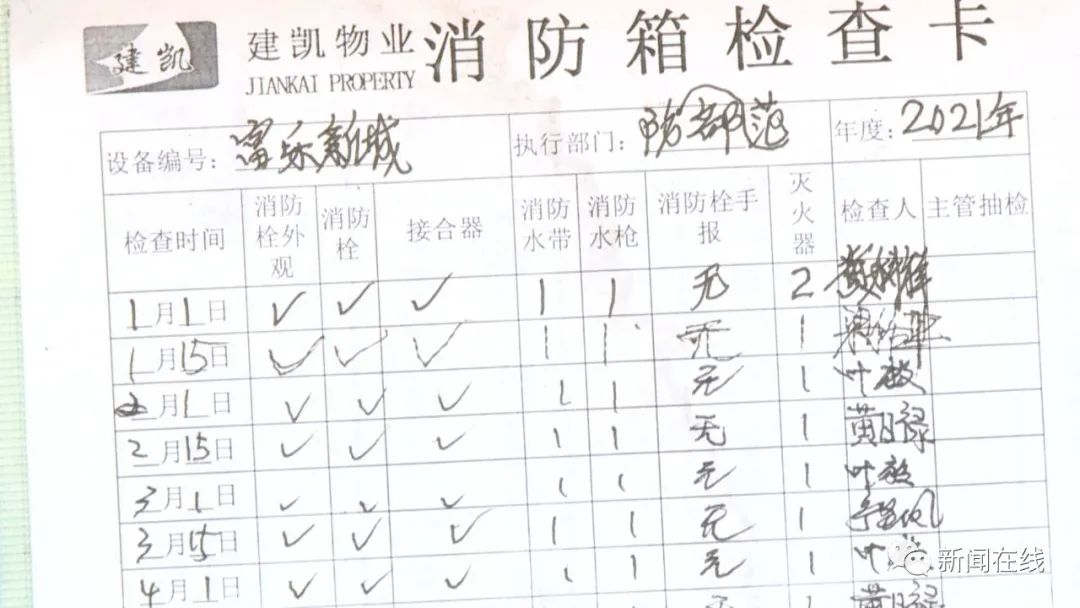 建凯 建凯物业 消防箱检查卡
JIANKAI PROPERTY
设备编号: 富乐新城 执行部门: 防部范 年度: 2021年
检查时间 消防栓外观 消防栓 接合器 消防水带 消防水枪 消防栓手报 灭火器 检查人 主管抽检
1月1日 ✓ ✓ ✓ 1 1 无 2
1月15日 ✓ ✓ ✓ 1 1 无 1
2月1日 ✓ ✓ ✓ 1 1 无 1 叶敏
2月15日 ✓ ✓ ✓ 1 1 无 1 黄日禄
3月1日 ✓ ✓ ✓ 1 1 无 1 叶敏
3月15日 ✓ ✓ ✓ 1 1 无 1
4月1日 ✓ ✓ ✓ 1 1 无 1 叶
黄日禄
新闻在线